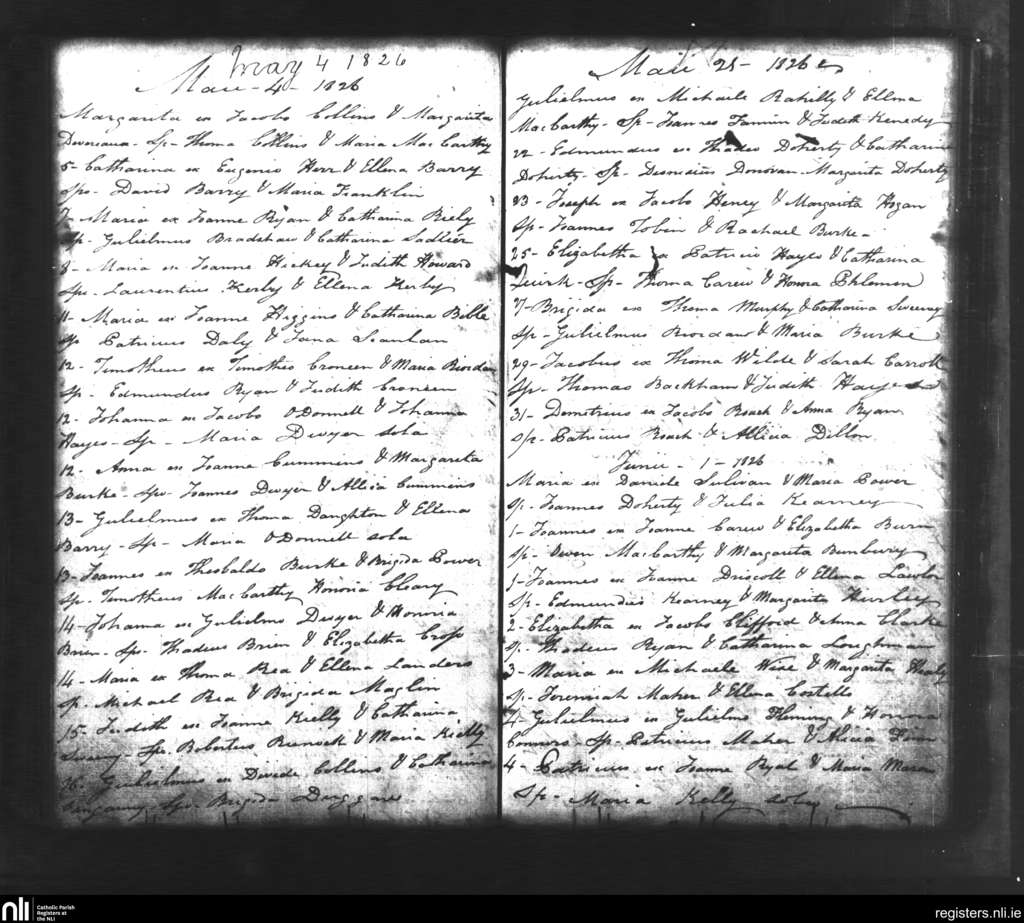 May 4 1826
Maii - 4 - 1826
Margarita ex Jacobo Collins & Margarita
Sp - Thoma Collins & Maria MacCarthy
5 - Catharina ex Eugenio Herr & Ellena Barry
Sps - David Barry & Maria Franklin
7 - Maria ex Joanne Ryan & Catharina Riely
Sp - Gulielmus Bradshaw & Catharina Sadlier
8 - Maria ex Joanne Hickey & Judith Howard
Sps - Laurentius Kerby & Ellena Kerby
11 - Maria ex Joanne Higgins & Catharina
Sp Patricius Daly & Jana Scanlan
12 - Timotheus ex Timotheo Croneen & Maria Riordan
Sp - Edmundus Ryan & Judith Croneen
12 - Johanna ex Jacobo ODonnell & Johanna
Hayes - Sp - Maria Dwyer sola
12 - Anna ex Joanne Cummins & Margarita
Burke - Sps - Joannes Dwyer & Allicia Cummins
13 - Gulielmus ex Thoma Danghton & Ellena
Barry - Sp - Maria ODonnell sola
13 - Joannes ex Theobaldo Burke & Brigida Power
Sp - Timotheus MacCarthy Honoria Cleary
14 - Johanna ex Gulielmo Dwyer & Honoria
Brien - Sps - Thadeus Brien & Elizabetha Cross
14 - Maria ex Thoma Rea & Ellena Landers
Sp. Michael Rea & Brigida Maglin
15 - Judith ex Joanne Kielly & Catharina
Sweeny - Sps. Robertus & Maria Kielly
16 - Gulielmus ex Davide Collins & Catharina
Sps - Brigida
Maii 21 - 1826
Gulielmus ex Michaele Rahilly & Ellena
MacCarthy - Sp - Joannes & Judith Kenedy
22 - Edmundus ex Thadeo Doherty & Catharina
Doherty - Sp - Donovan Margarita Doherty
23 - Joseph ex Jacobo Henry & Margarita Hogan
Sp - Joannes Tobin & Rachael Burke
25 - Elizabetha ex Patricio Hayes & Catharina
Quirk - Sp - Thoma Carew & Honora
27 - Brigida ex Thoma Murphy & Catharina Sweeney
Sp - Gulielmus Riordan & Maria Burke
29 - Jacobus ex Thoma Wilde & Sarah Carroll
Sp - Thomas Backham & Judith Hayes
31 - Demetrius ex Jacobo Roach & Anna Ryan
Sp - Patricius Roach & Allicia Dillon
Junii - 1 - 1826
Maria ex Daniele Sulivan & Maria Power
Sp - Joannes Doherty & Julia Kearney
1 - Joannes ex Joanne Carew & Elizabetha Burn
Sp - Owen MacCarthy & Margarita Bunbury
1 - Joannes ex Joanne Driscoll & Ellena Lawlor
Sp - Edmundus Kearney & Margarita Hurley
2 - Elizabetha ex Jacobo Clifford & Anna Clarke
Sp - Thadeus Ryan & Catharina Loughman
3 - Maria ex Michaele Wise & Margarita
Sp - Jeremiah Maher & Ellena Costello
4 - Gulielmus ex Gulielmo Fleming & Honora
Connors - Sp - Patricius Maher & Alicia
4 - Patricius ex Joanne Ryal & Maria Mara
Sp - Maria Kelly sola
nli Catholic Parish
Registers at
the NLI
registers.nli.ie